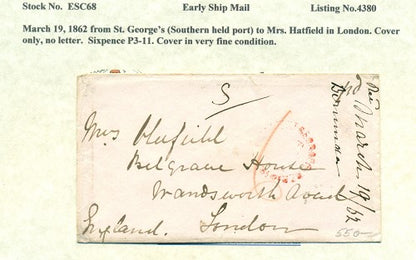 Stock No. ESC68 Early Ship Mail Listing No.4380
March 19, 1862 from St. George's (Southern held port) to Mrs. Hatfield in London. Cover
only, no letter. Sixpence P3-11. Cover in very fine condition.
S
Mrs Oldfield
Belgrave House
Wandsworth Road
England. London
March 19/62
Bermuda
550-